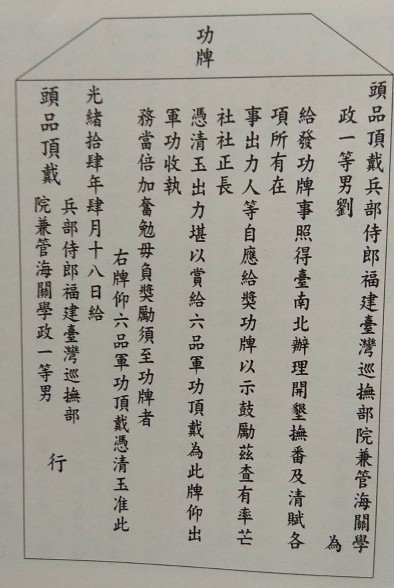 功牌
頭品頂戴兵部侍郎福建臺灣巡撫部院兼管海關學
政一等男劉
為
給發功牌事照得臺南北辦理開墾撫番及清賦各
項所有在
事出力人等自應給獎功牌以示鼓勵茲查有率芒
社社正長
憑清玉出力堪以賞給六品軍功頂戴為此牌仰出
軍功收執
務當倍加奮勉毋負獎勵須至功牌者
右牌仰六品軍功頂戴憑清玉准此
光緒拾肆年肆月十八日給
兵部侍郎福建臺灣巡撫部
頭品頂戴
院兼管海關學政一等男
行